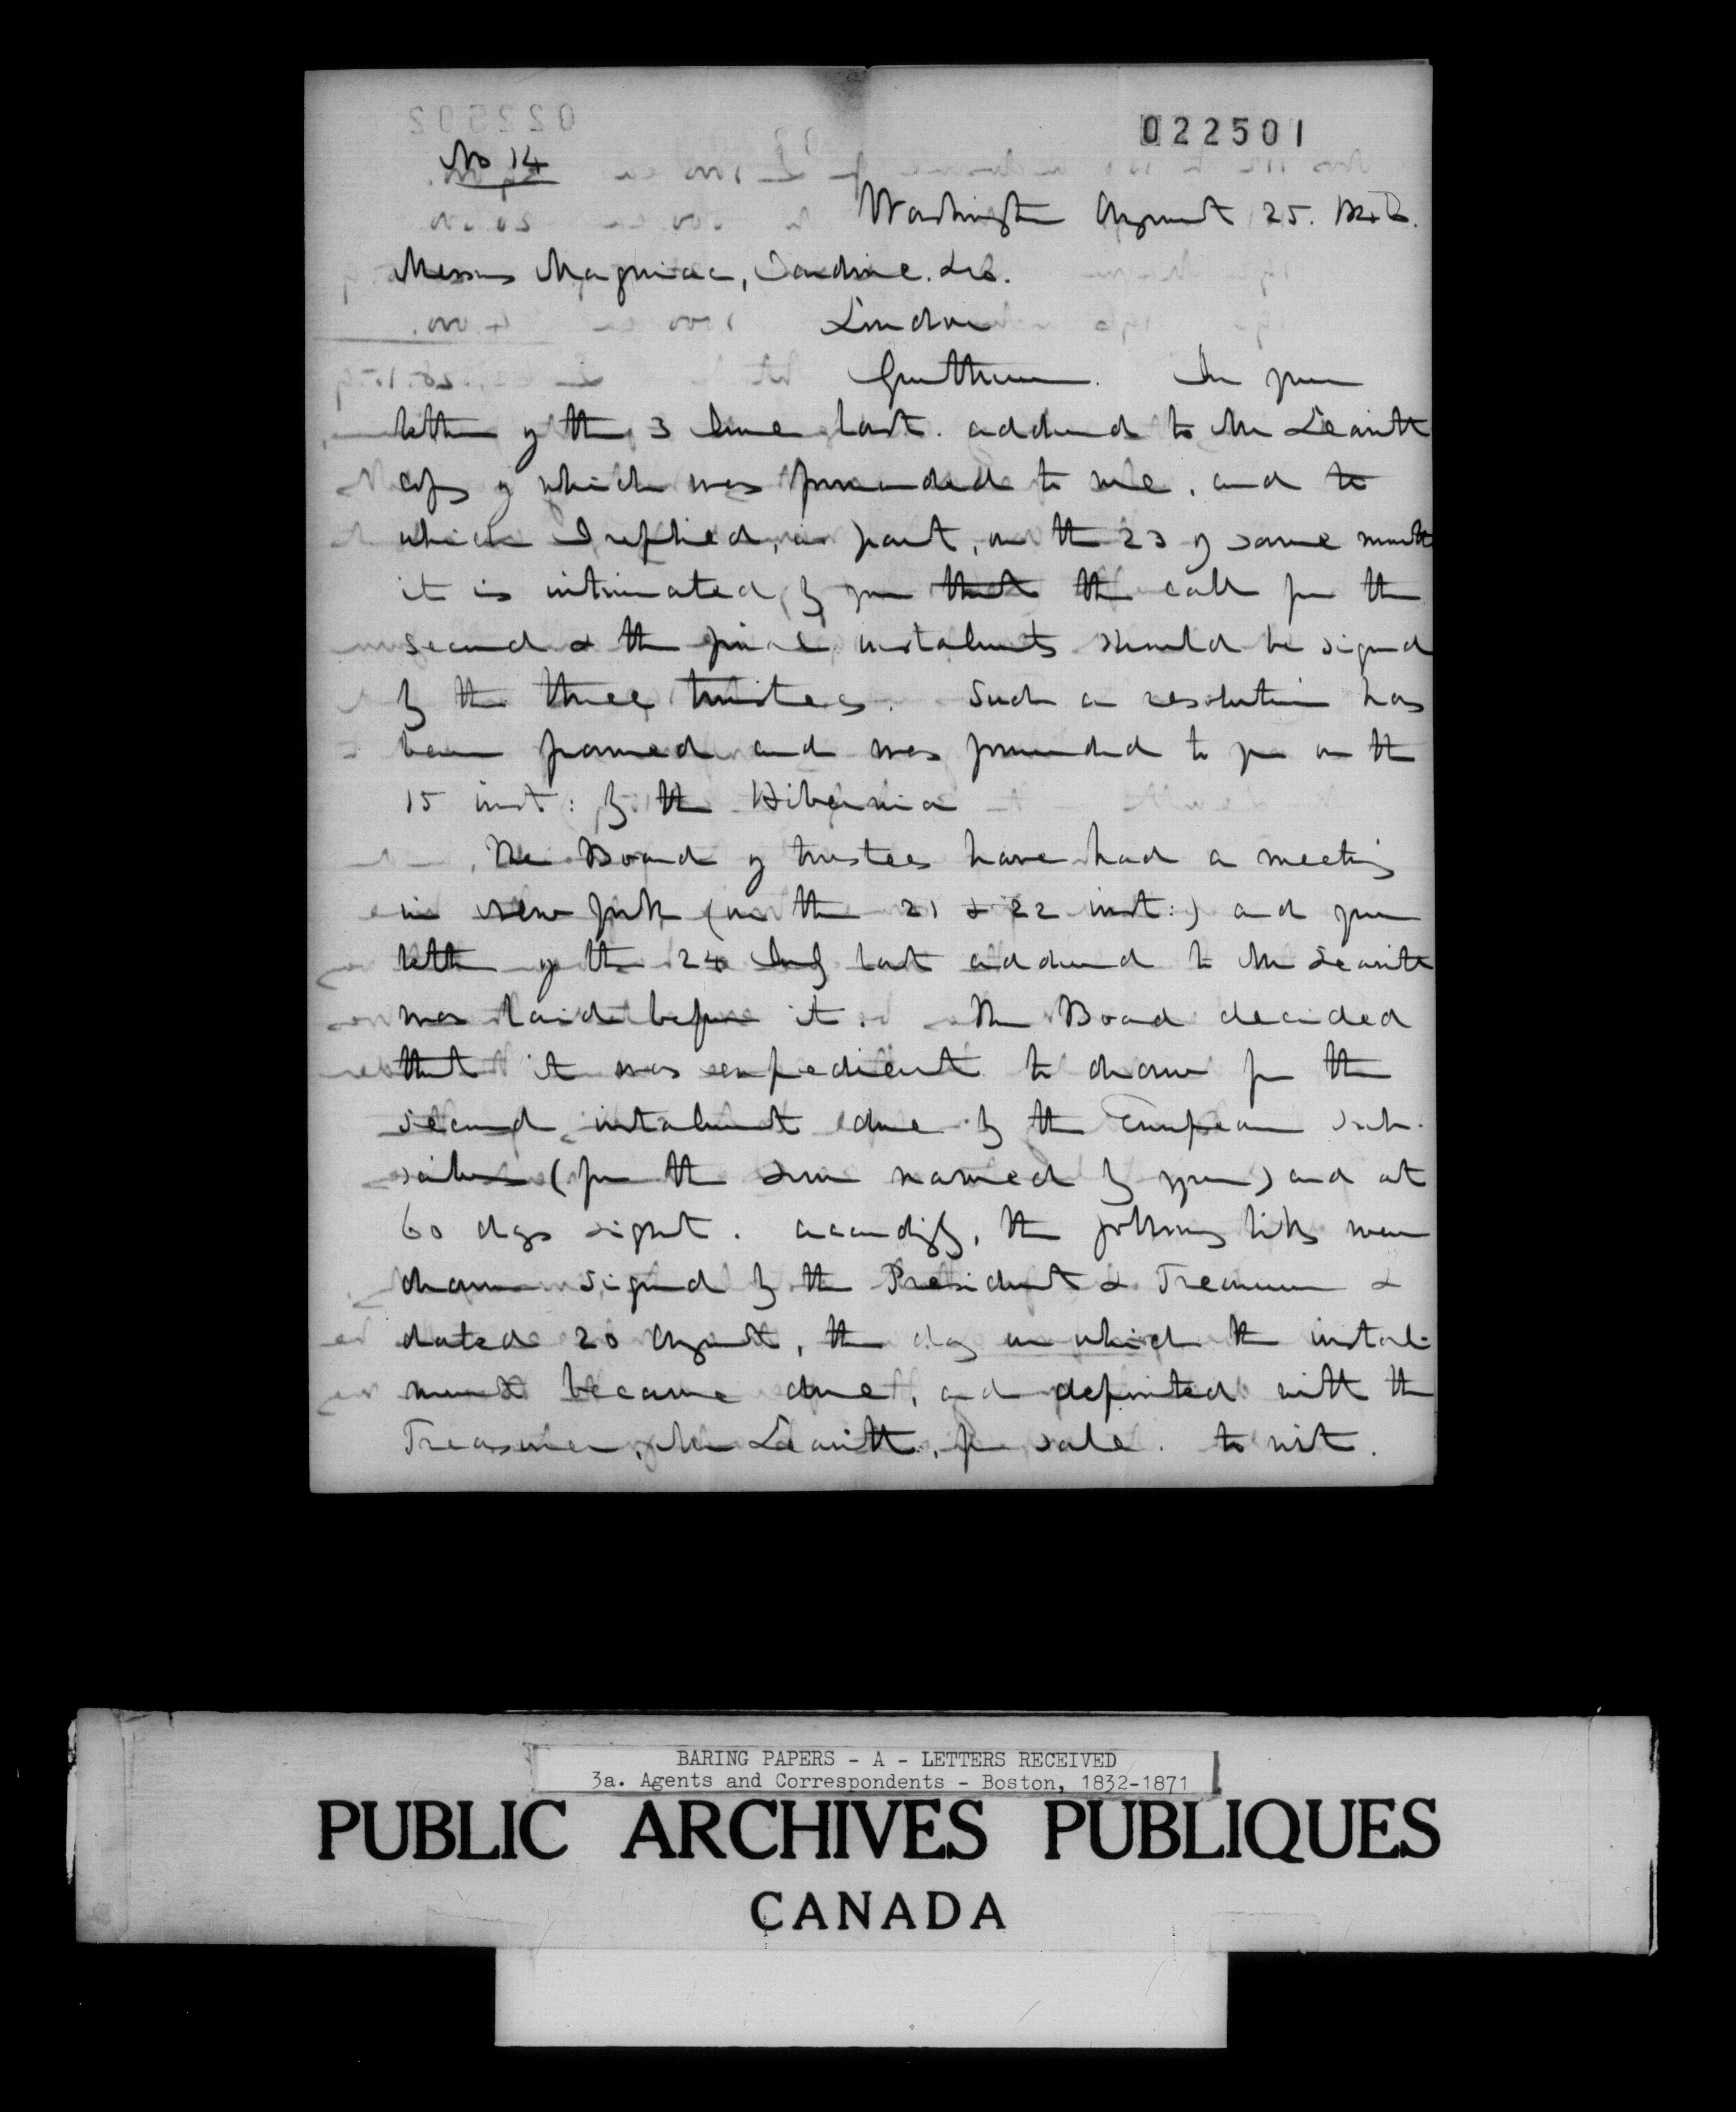 022501
No 14
Washington August 25.
Messrs Magniac, Jardine & Co.
London
Gentlemen. In your
letter of the 3 June last. addressed to Mr Leavitt
copy of which was forwarded to me, and to
which I replied, in part, on the 23 of same month
it is intimated by you that the call for the
second & the final instalments should be signed
by the three trustees. Such a resolution has
been framed and was forwarded to you on the
15 inst: by the Hibernia
The Board of trustees have had a meeting
in New York (on the 21 & 22 inst:) and your
letter of the 24 July last addressed to Mr Leavitt
was laid before it. The Board decided
that it was expedient to draw for the
second instalment due by the European sub-
scribers (for the sum named by you) and at
60 days sight. accordingly, the following bills were
drawn signed by the President & Treasurer &
dated 20 August, the day on which the instal-
ment became due, and deposited with the
Treasurer, Mr Leavitt, for sale. to wit.
BARING PAPERS - A - LETTERS RECEIVED
3a. Agents and Correspondents - Boston, 1832-1871
PUBLIC ARCHIVES PUBLIQUES
CANADA